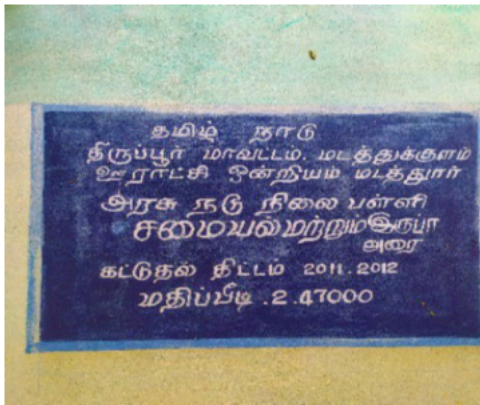 தமிழ் நாடு
திருப்பூர் மாவட்டம். மடத்துக்குளம்
ஊராட்சி ஒன்றியம் மடத்தூர்
அரசு நடு நிலை பள்ளி
சமையல் மற்றும் இருப்பு
அறை
கட்டுதல் திட்டம் 2011.2012
மதிப்பீடு .2.47000